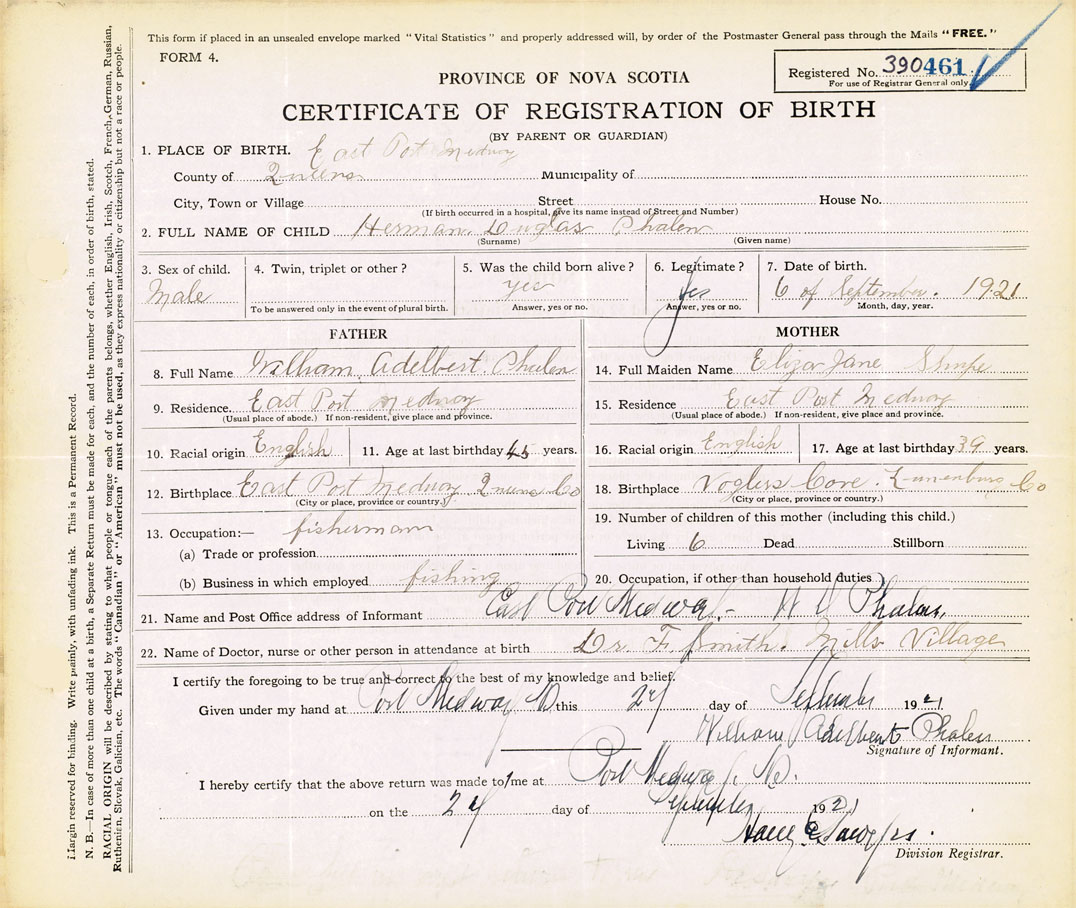 This form if placed in an unsealed envelope marked "Vital Statistics" and properly addressed will, by order of the Postmaster General pass through the Mails "FREE."
FORM 4.
Registered No. 390461
For use of Registrar General only.
PROVINCE OF NOVA SCOTIA
CERTIFICATE OF REGISTRATION OF BIRTH
(BY PARENT OR GUARDIAN)
1. PLACE OF BIRTH. East Port Medway
County of Queens Municipality of
City, Town or Village Street House No.
(If birth occurred in a hospital, give its name instead of Street and Number)
2. FULL NAME OF CHILD Herman Duglas Phalen
(Surname) (Given name)
3. Sex of child. Male
4. Twin, triplet or other?
To be answered only in the event of plural birth.
5. Was the child born alive? yes
Answer, yes or no.
6. Legitimate? Yes
Answer, yes or no.
7. Date of birth. 6 of September. 1921
Month, day, year.
FATHER
8. Full Name William Adelbert Phalen
9. Residence. East Port Medway
(Usual place of abode.) If non-resident, give place and province.
10. Racial origin English 11. Age at last birthday 45 years.
12. Birthplace East Port Medway Queens Co
(City or place, province or country.)
13. Occupation:— fishermann
(a) Trade or profession.
(b) Business in which employed fishing
MOTHER
14. Full Maiden Name Eliza Jane
15. Residence East Port Medway
(Usual place of abode.) If non-resident, give place and province.
16. Racial origin English 17. Age at last birthday 39 years.
18. Birthplace Voglers Cove. Lunenburg Co
(City or place, province or country.)
19. Number of children of this mother (including this child.)
Living 6 Dead Stillborn
20. Occupation, if other than household duties
21. Name and Post Office address of Informant East Port Medway - W A Phalen,
22. Name of Doctor, nurse or other person in attendance at birth Dr. F. Smith. Mills Village
I certify the foregoing to be true and correct to the best of my knowledge and belief.
Given under my hand at Port Medway this 24 day of September 1921
William Adelbert Phalen
Signature of Informant.
I hereby certify that the above return was made to me at Port Medway
on the 24 day of September 1921
Division Registrar.
Margin reserved for binding. Write plainly, with unfading ink. This is a Permanent Record.
N. B.—In case of more than one child at a birth, a Separate Return must be made for each, and the number of each, in order of birth, stated.
RACIAL ORIGIN will be described by stating to what people or tongue each of the parents belongs, whether English, Irish, Scotch, French, German, Russian,
Ruthenien, Slovak, Galician, etc. The words "Canadian" or "American" must not be used, as they express nationality or citizenship but not a race or people.